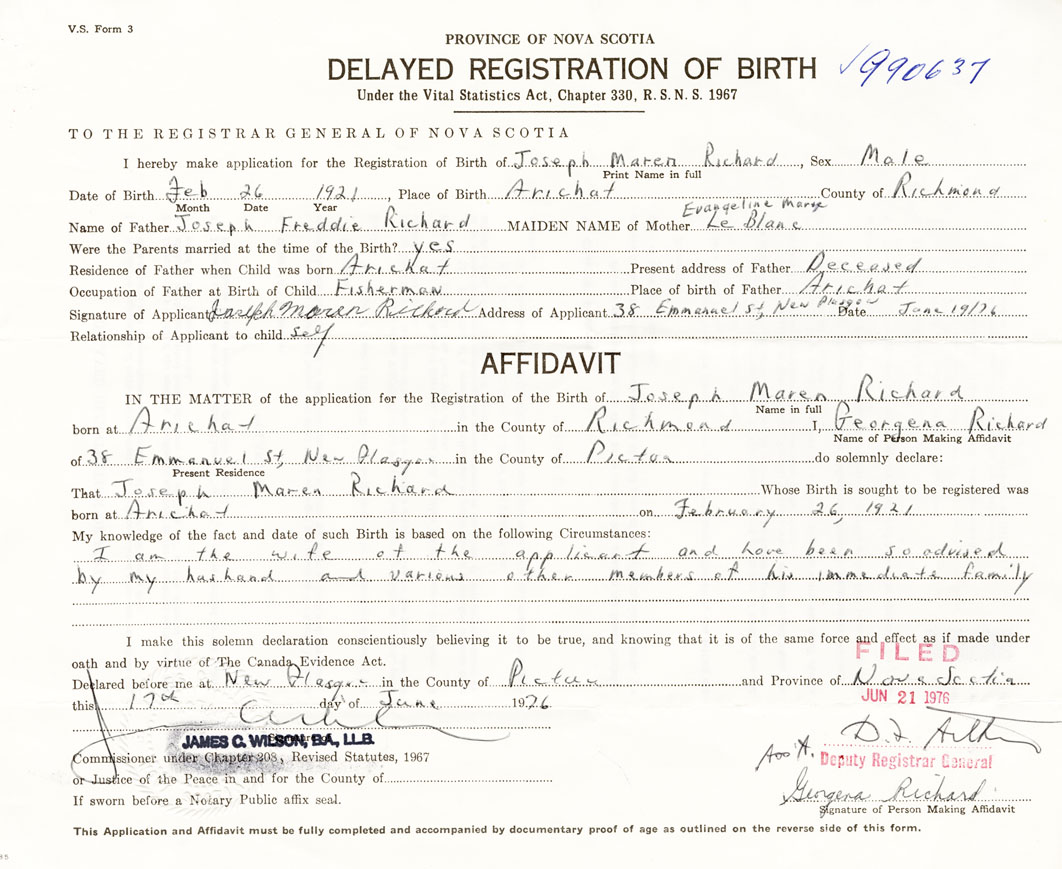 V.S. Form 3
PROVINCE OF NOVA SCOTIA
DELAYED REGISTRATION OF BIRTH ✓990637
Under the Vital Statistics Act, Chapter 330, R.S.N.S. 1967
TO THE REGISTRAR GENERAL OF NOVA SCOTIA
I hereby make application for the Registration of Birth of Joseph Maren Richard, Sex Male
Print Name in full
Date of Birth Feb 26 1921, Place of Birth Arichat County of Richmond
Month Date Year
Evangeline Marye
Name of Father Joseph Freddie Richard MAIDEN NAME of Mother Le Blanc
Were the Parents married at the time of the Birth? yes
Residence of Father when Child was born Arichat Present address of Father Deceased
Occupation of Father at Birth of Child Fisherman Place of birth of Father Arichat
Signature of Applicant Joseph Maren Richard Address of Applicant 38 Emmanuel St, New Glasgow Date June 19/76
Relationship of Applicant to child self
AFFIDAVIT
IN THE MATTER of the application for the Registration of the Birth of Joseph Maren Richard
Name in full
born at Arichat in the County of Richmond I, Georgena Richard
Name of Person Making Affidavit
of 38 Emmanuel St, New Glasgow in the County of Pictou do solemnly declare:
Present Residence
That Joseph Maren Richard Whose Birth is sought to be registered was
born at Arichat on February 26, 1921
My knowledge of the fact and date of such Birth is based on the following Circumstances:
I am the wife of the applicant and have been so advised
by my husband and various other members of his immediate family
I make this solemn declaration conscientiously believing it to be true, and knowing that it is of the same force and effect as if made under
oath and by virtue of The Canada Evidence Act.
FILED
Declared before me at New Glasgow in the County of Pictou and Province of Nova Scotia
this 17th day of June 1976
JUN 21 1976
JAMES C. WILSON, B.A., LL.B.
Commissioner under Chapter 208, Revised Statutes, 1967
Deputy Registrar General
or Justice of the Peace in and for the County of
If sworn before a Notary Public affix seal.
Georgena Richard
Signature of Person Making Affidavit
This Application and Affidavit must be fully completed and accompanied by documentary proof of age as outlined on the reverse side of this form.